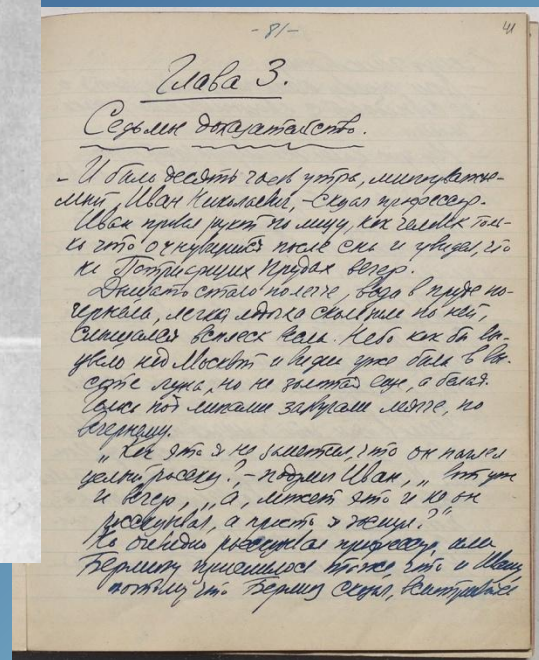 -81-
41
Глава 3.
Седьмое доказательство.
– И было десять часов утра, многоуважае-
мый Иван Николаевич, – сказал профессор.
Иван провел рукой по лицу, как человек толь-
ко что очнувшийся после сна и увидел, что
на Патриарших Прудах вечер.
Дышать стало полегче, вода в пруде по-
чернела, легкая лодочка скользила по ней,
слышался всплеск весла. Небо как бы вы-
цвело над Москвой и видна уже была в вы-
соте луна, но не золотая еще, а белая.
под липами звучали мягче, по
вечернему.
„Как это я не заметил, что он наплел
целый рассказ?, – подумал Иван, „ вот уж
и вечер, „ „А, может это и не он
рассказывал, а просто я заснул?"
Но очевидно рассказывал профессор, или
Берлиозу приснилось тоже что и Ивану
потому что Берлиоз сказал, всматриваясь